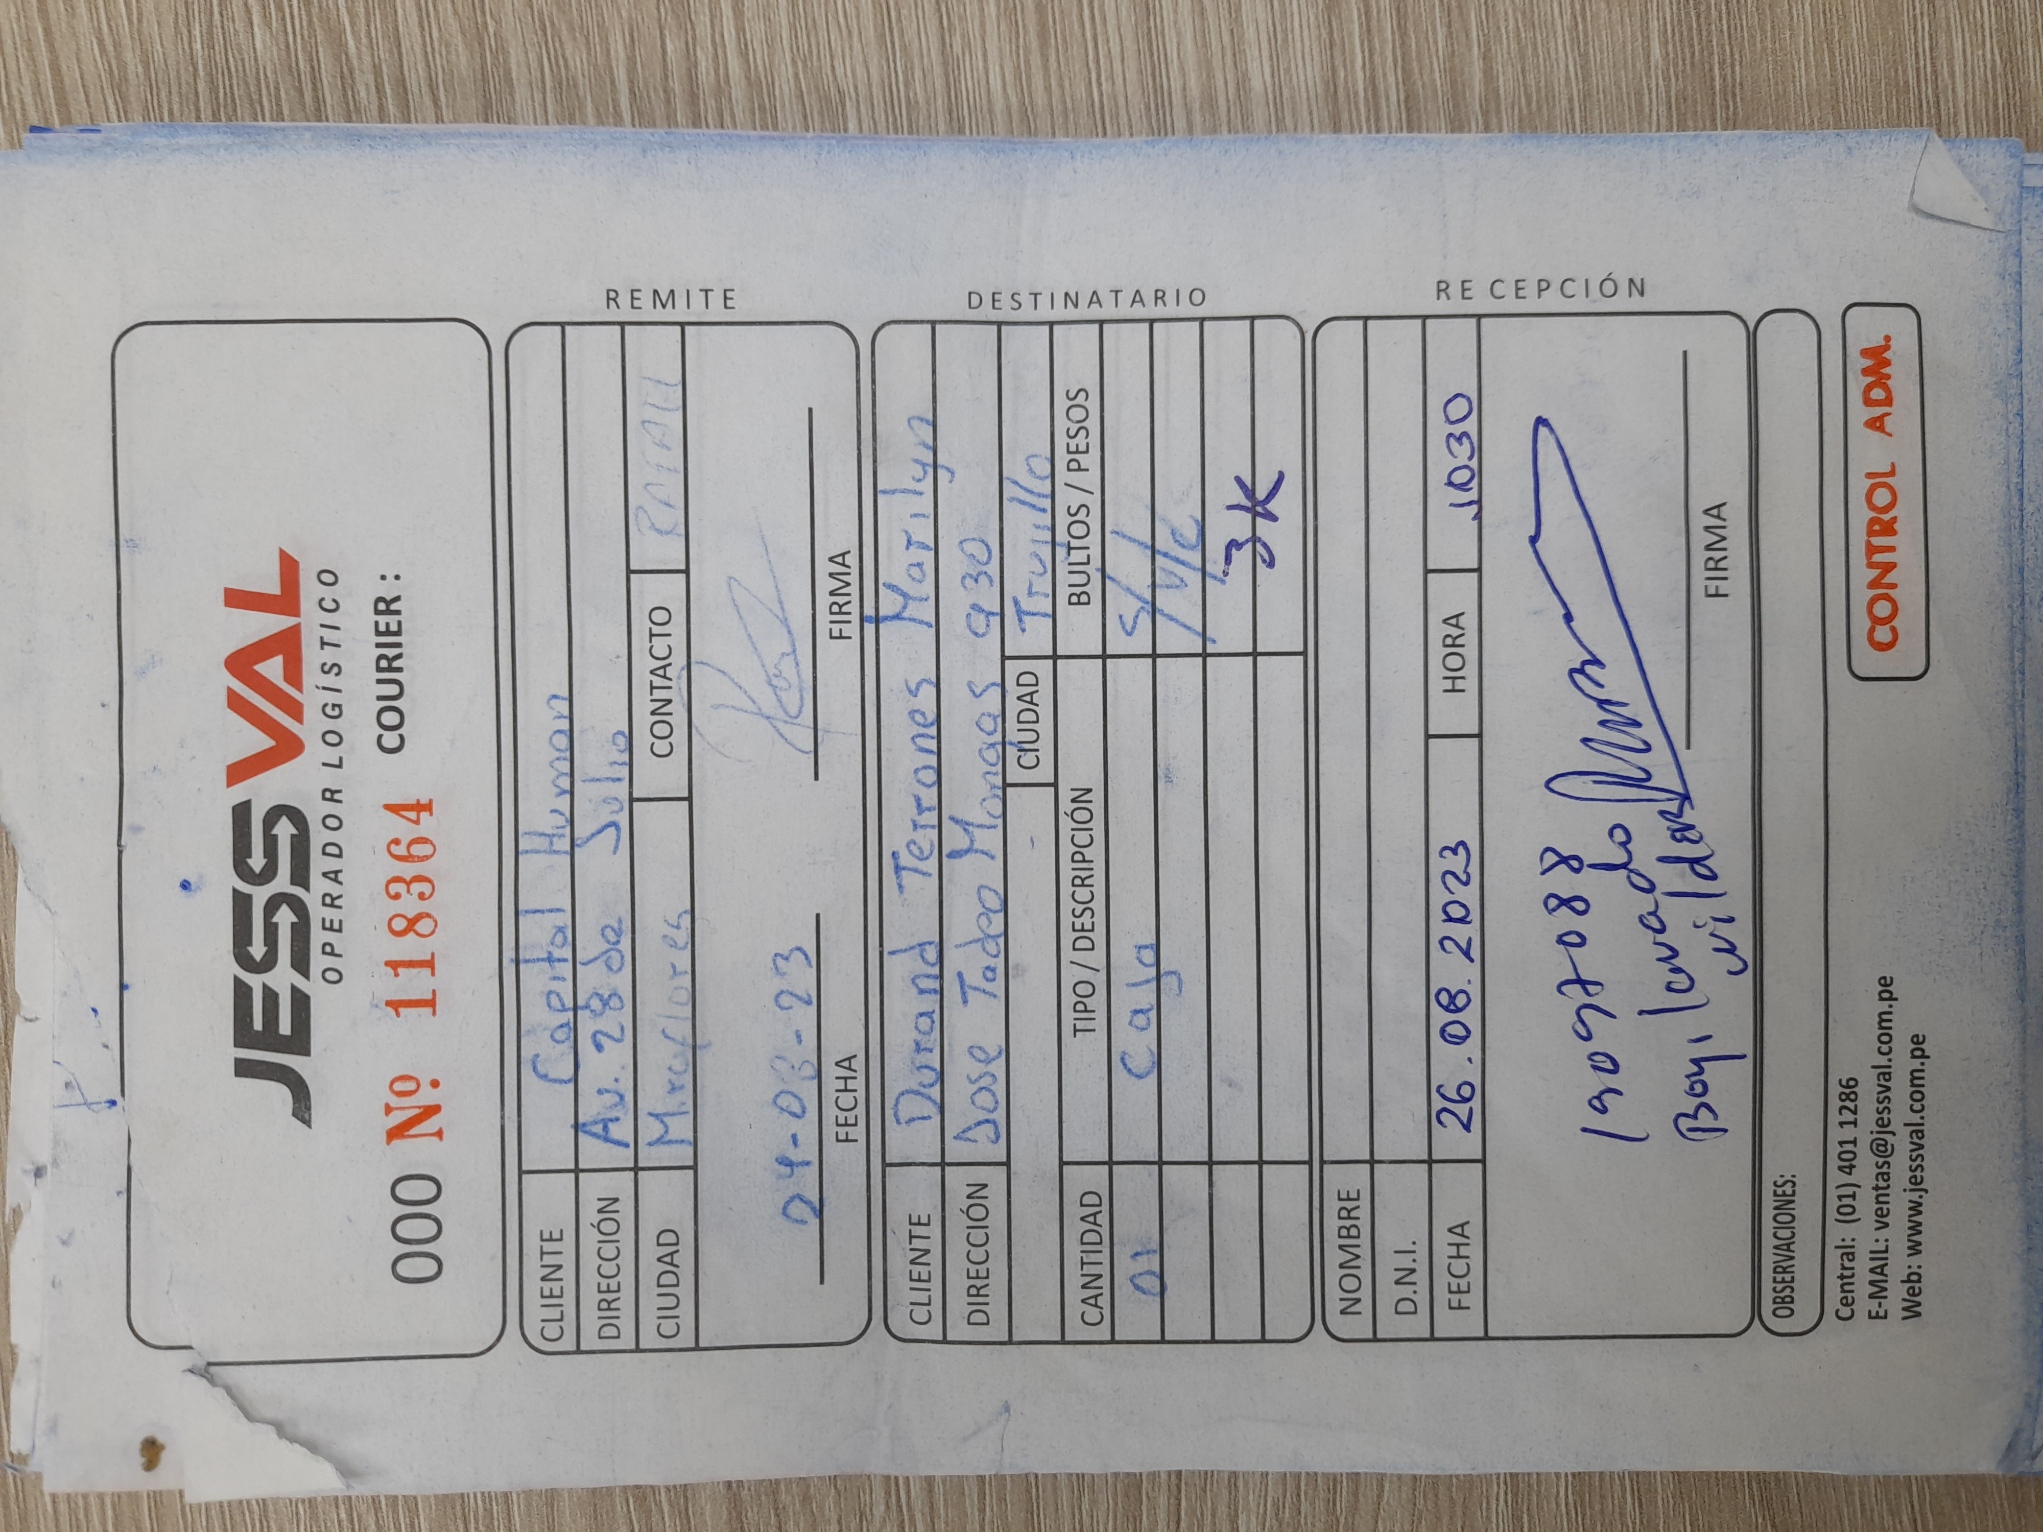 JESSVAL
OPERADOR LOGÍSTICO
000 Nº 118364 COURIER :
CLIENTE Capital Human
DIRECCIÓN Av. 28 de Julio
CIUDAD Miraflores CONTACTO RAFAEL
24-08-23
FECHA FIRMA
REMITE
CLIENTE Durand Terrones Marilyn
DIRECCIÓN Jose Tadeo Mongas 930
CIUDAD Trujillo
CANTIDAD TIPO / DESCRIPCIÓN BULTOS / PESOS
01 Caja S/V/C
3K
DESTINATARIO
NOMBRE
D.N.I.
FECHA 26.08.2023 HORA 1030
19097088
lavado
wilder
FIRMA
RECEPCIÓN
OBSERVACIONES:
Central: (01) 401 1286
E-MAIL: ventas@jessval.com.pe
Web: www.jessval.com.pe
CONTROL ADM.